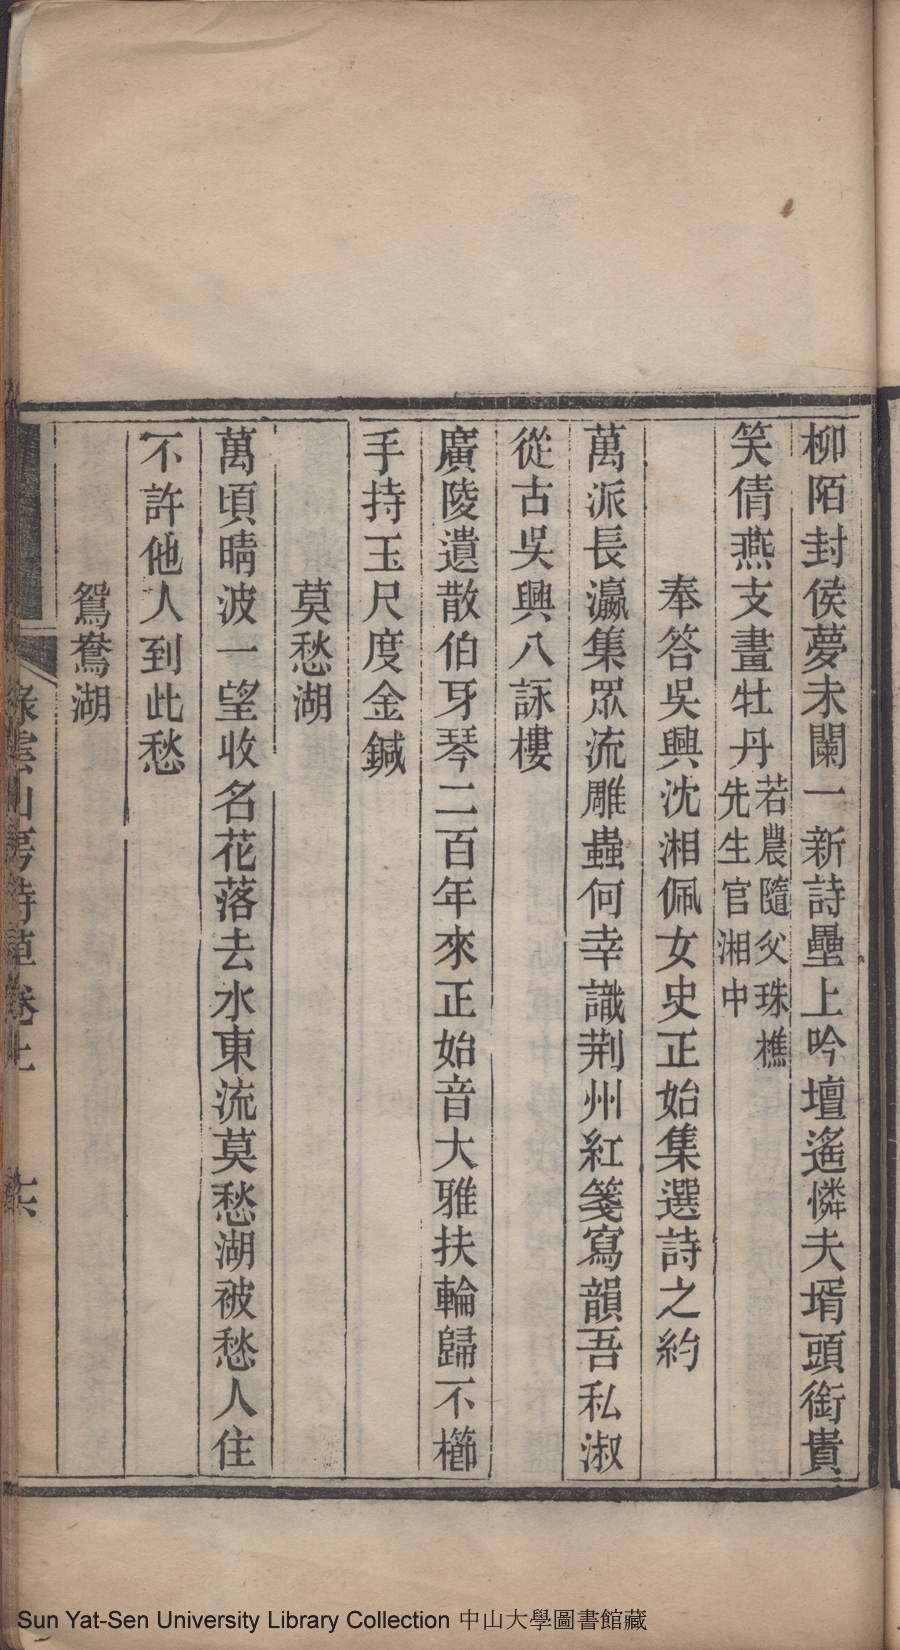 柳陌封侯夢未闌一新詩壘上吟壇遙憐夫壻頭銜貴
笑倩燕支畫牡丹若農隨父珠樵先生官湘中
奉答吳興沈湘佩女史正始集選詩之約
萬派長瀛集眾流雕蟲何幸識荆州紅箋寫韻吾私淑
從古吳興八詠樓
廣陵遺散伯牙琴二百年來正始音大雅扶輪歸不櫛
手持玉尺度金鍼
莫愁湖
萬頃晴波一望收名花落去水東流莫愁湖被愁人住
不許他人到此愁
鴛鴦湖
山房詩草卷上
Sun Yat-Sen University Library Collection 中山大學圖書館藏